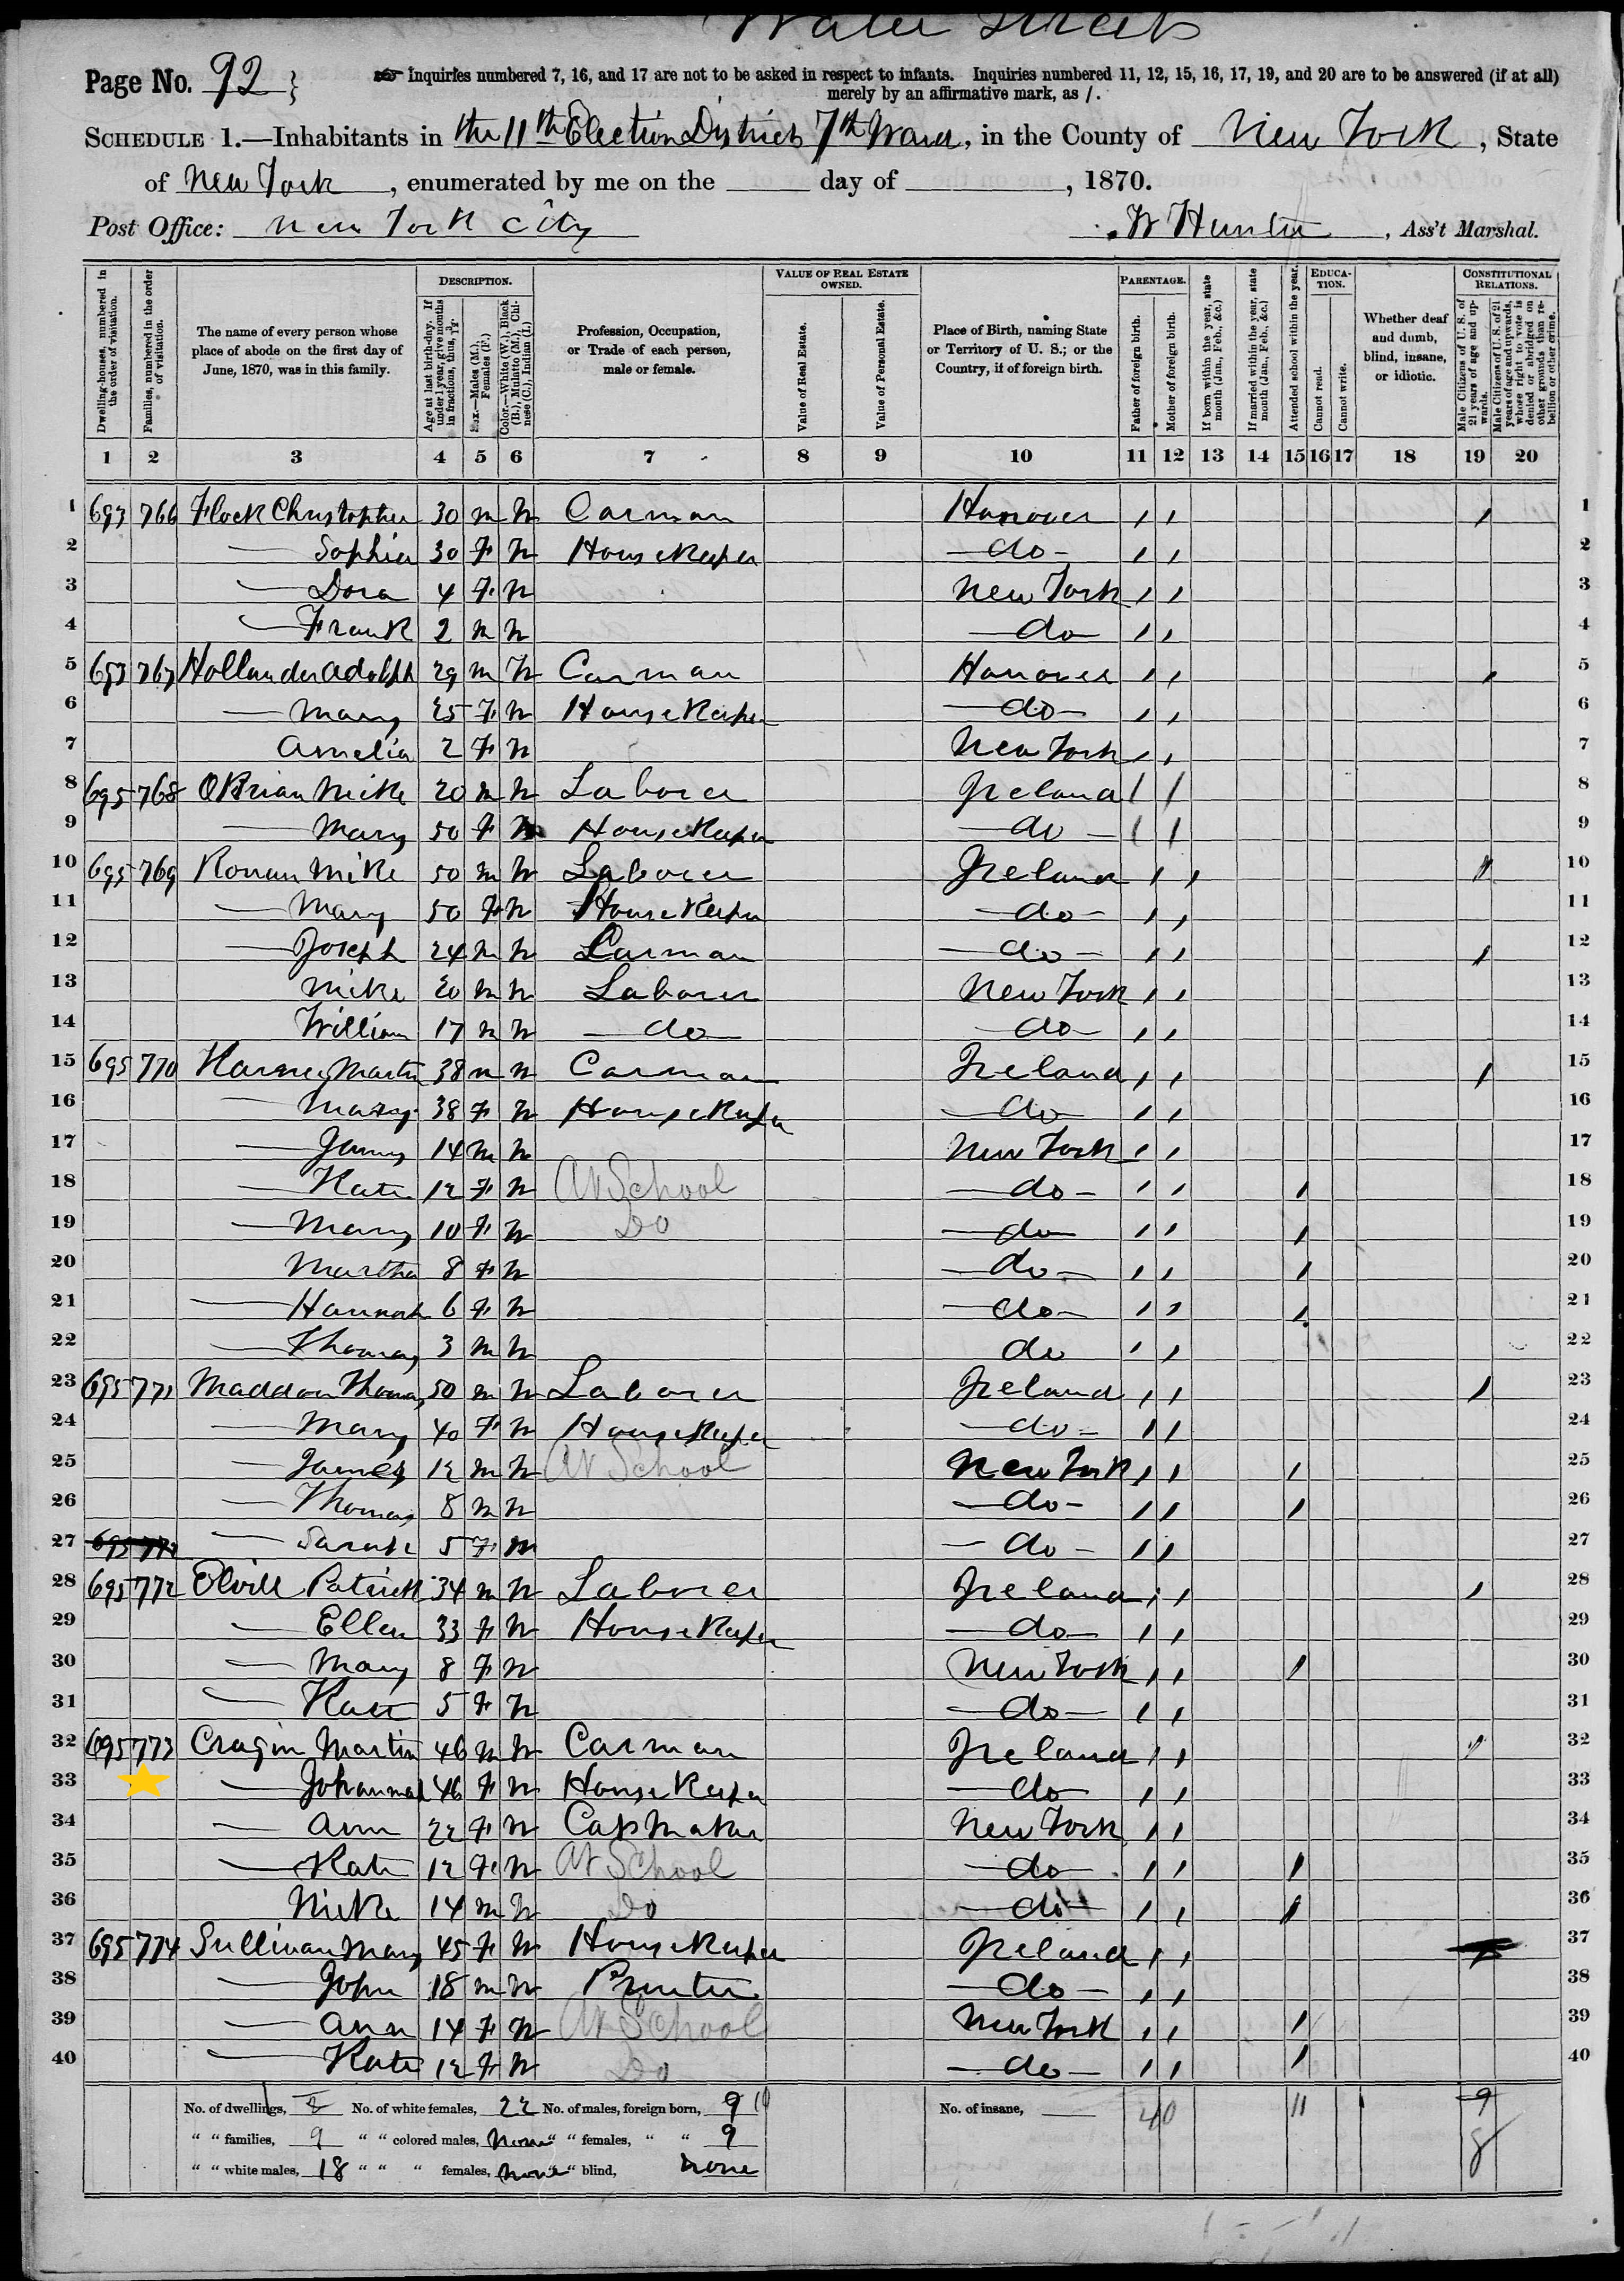 Water Street
Page No. 92 }
Inquiries numbered 7, 16, and 17 are not to be asked in respect to infants. Inquiries numbered 11, 12, 15, 16, 17, 19, and 20 are to be answered (if at all)
merely by an affirmative mark, as /.
SCHEDULE 1.—Inhabitants in the 11th Election District 7th Ward, in the County of New York, State
of New York, enumerated by me on the ___ day of ___, 1870.
Post Office: New York City
W Hunter, Ass't Marshal.
Dwelling-houses, numbered in the order of visitation.
Families, numbered in the order of visitation.
The name of every person whose place of abode on the first day of June, 1870, was in this family.
DESCRIPTION.
Age at last birth-day. If under 1 year, give months in fractions, thus, 3/12.
Sex.—Males (M.), Females (F.)
Color.—White (W.), Black (B.), Mulatto (M.), Chinese (C.), Indian (I.)
Profession, Occupation, or Trade of each person, male or female.
VALUE OF REAL ESTATE OWNED.
Value of Real Estate.
Value of Personal Estate.
Place of Birth, naming State or Territory of U. S.; or the Country, if of foreign birth.
PARENTAGE.
Father of foreign birth.
Mother of foreign birth.
If born within the year, state month (Jan., Feb., &c.)
If married within the year, state month (Jan., Feb., &c.)
Attended school within the year.
EDUCATION.
Cannot read.
Cannot write.
Whether deaf and dumb, blind, insane, or idiotic.
CONSTITUTIONAL RELATIONS.
Male Citizens of U. S. of 21 years of age and upwards.
Male Citizens of U. S. of 21 years of age and upwards, whose right to vote is denied or abridged on other grounds than rebellion or other crime.
1 2 3 4 5 6 7 8 9 10 11 12 13 14 15 16 17 18 19 20
1 693 766 Flock Christopher 30 M W Carman Hanover / / / 1
2 — Sophia 30 F W House Keeper — do — / / 2
3 — Dora 4 F W New York / / 3
4 — Frank 2 M W — do — / / 4
5 693 767 Hollander Adolph 29 M W Carman Hanover / / / 5
6 — Mary 25 F W House Keeper — do — / / 6
7 Amelia 2 F W New York / / 7
8 695 768 OBrian Mike 20 M W Laborer Ireland / / 8
9 — Mary 50 F W House Keeper — do — / / 9
10 695 769 Ronan Mike 50 M W Laborer Ireland / / / 10
11 — Mary 50 F W House Keeper — do — / / 11
12 — Joseph 24 M W Carman — do — / / / 12
13 Mike 20 M W Laborer New York / / 13
14 William 17 M W — do — — do — / / 14
15 695 770 Martin 38 M W Carman Ireland / / / 15
16 — Mary 38 F W House Keeper — do — / / 16
17 — James 14 M W New York / / 17
18 — Kate 12 F W At School — do — / / / 18
19 — Mary 10 F W Do — do — / / / 19
20 Martha 8 F W — do — / / / 20
21 — Hannah 6 F W — do — / / / 21
22 — Thomas 3 M W do / / 22
23 695 771 Maddon Thomas 50 M W Laborer Ireland / / / 23
24 — Mary 40 F W House Keeper — do — / / 24
25 — James 12 M W At School New York / / / 25
26 — Thomas 8 M W — do — / / / 26
27 695 772 — Sarah 5 F W — do — / / 27
28 695 772 Patrick 34 M W Laborer Ireland / / / 28
29 — Ellen 33 F W House Keeper — do — / / 29
30 — Mary 8 F W New York / / / 30
31 — Kate 5 F W — do — / / 31
32 695 773 Cragin Martin 46 M W Carman Ireland / / / 32
33 — Johannah 46 F W House Keeper — do — / / 33
34 — Ann 22 F W Cap Maker New York / / 34
35 — Kate 12 F W At School — do — / / / 35
36 Mike 14 M W Do — do — / / / 36
37 695 774 Sullivan Mary 45 F W House Keeper Ireland / / 37
38 — John 18 M W Printer — do — / / 38
39 — Ann 14 F W At School New York / / / 39
40 — Kate 12 F W Do — do — / / / 40
No. of dwellings, 2 No. of white females, 22 No. of males, foreign born, 9 10 No. of insane, — 40 11 9
" " families, 9 " " colored males, None " " females, " " 9 8
" " white males, 18 " " " females, None " " blind, None